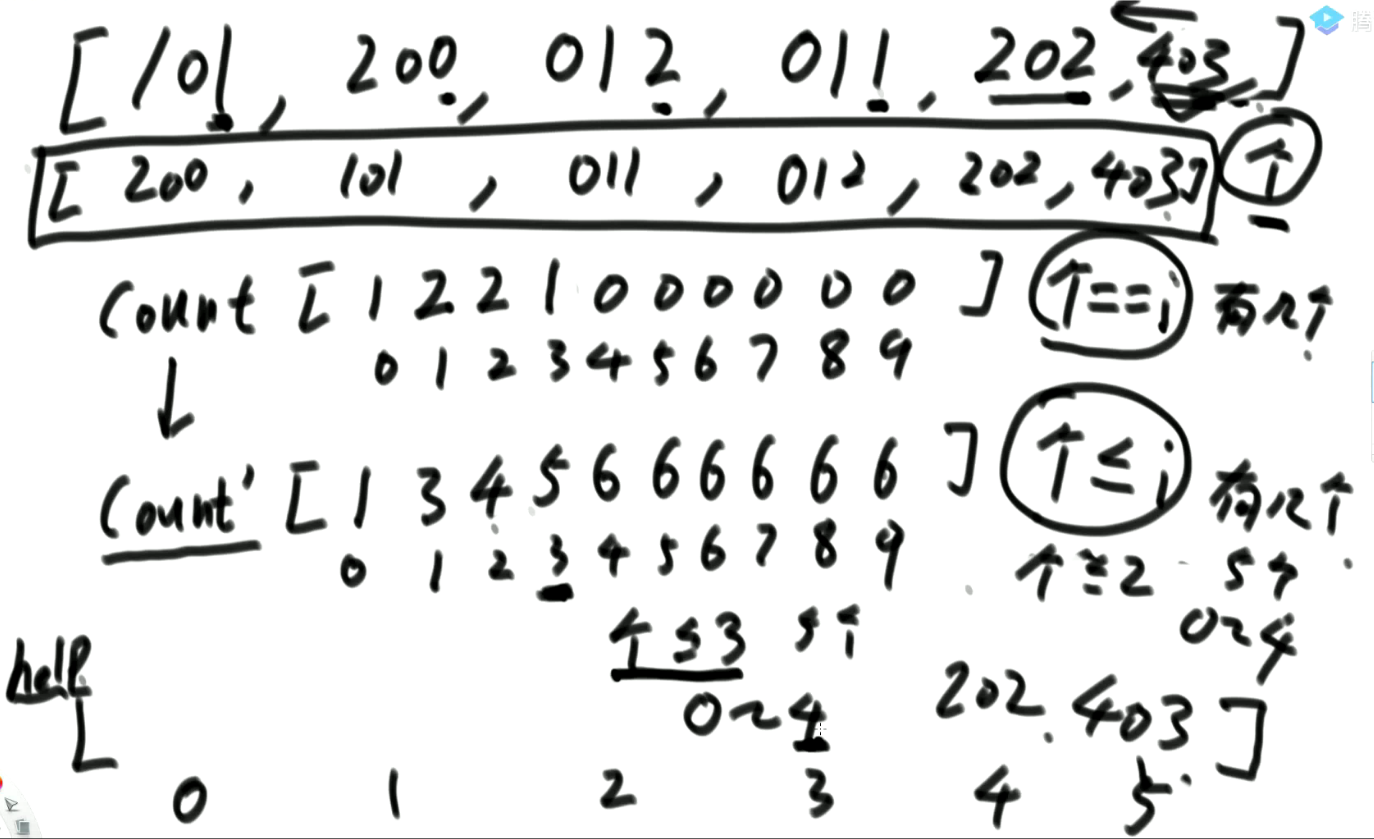 [ 101, 200, 012, 011, 202, 403, ] 腾
[ 200, 101, 011, 012, 202, 403] 个
Count [ 1 2 2 1 0 0 0 0 0 0 ] 个==i 有几个
0 1 2 3 4 5 6 7 8 9
Count' [ 1 3 4 5 6 6 6 6 6 6 ] 个≤i 有几个
0 1 2 3 4 5 6 7 8 9 2 5个
个≤3 5个 0~4
help 0~4
[ 202. 403 ]
0 1 2 3 4 5